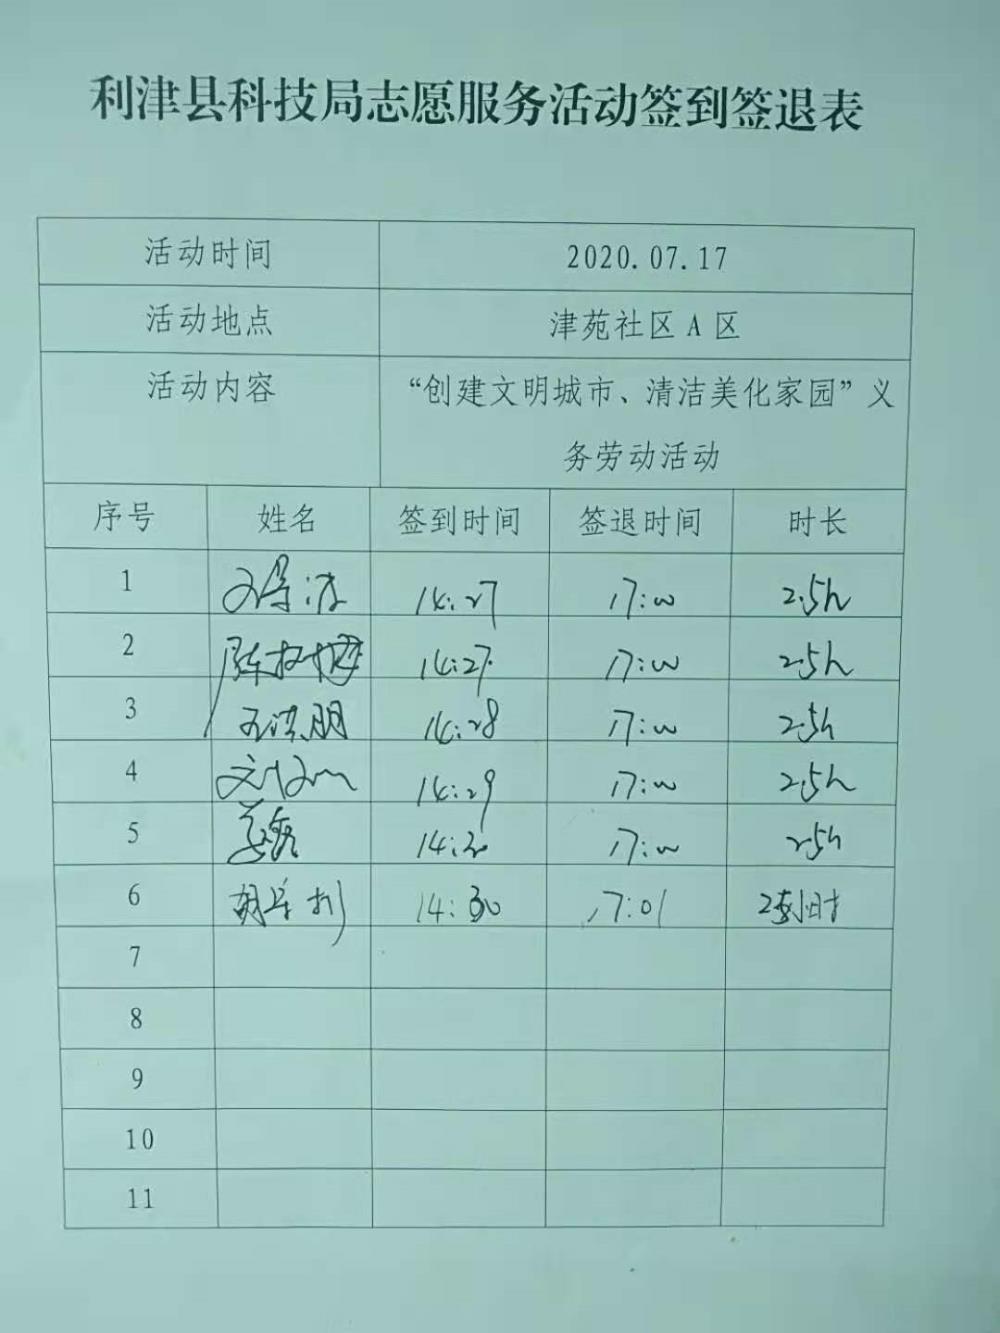 利津县科技局志愿服务活动签到签退表
活动时间 2020.07.17
活动地点 津苑社区 A 区
活动内容 “创建文明城市、清洁美化家园”义
务劳动活动
序号 姓名 签到时间 签退时间 时长
1 14:27 17:00 2.5h
2 14:27 17:00 2.5h
3 14:28 17:00 2.5h
4 14:29 17:00 2.5h
5 14:30 17:00 2.5h
6 14:30 17:01
7
8
9
10
11